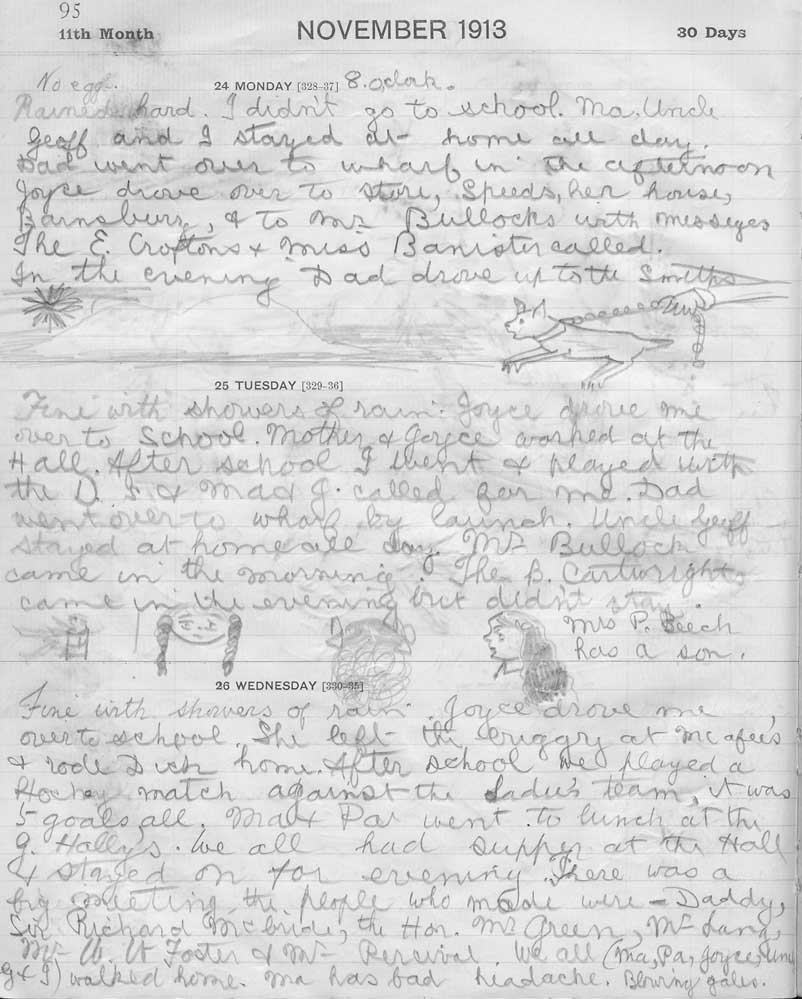 95
11th Month NOVEMBER 1913 30 Days
No egg. 24 MONDAY [328-37] 8.oclock.
Rained hard. I didn't go to school. Ma, Uncle
Geoff and I stayed at home all day.
Dad went over to wharf in the afternoon
Joyce drove over to store, Speeds, her house,
Barnsbury, & to Mr Bullocks with messeges
The E. Croftons & Miss Banister called.
In the evening Dad drove up to the Smiths
25 TUESDAY [329-36]
Fine with showers of rain. Joyce drove me
over to School. Mother & Joyce worked at the
Hall. After school I went & played with
the D. Ma & J. called for me. Dad
went over to wharf by launch. Uncle Geoff
stayed at home all day. Mr Bullock
came in the morning. The B. Cartwrights
came in the evening but didn't stay.
Mrs P. Beech
has a son.
26 WEDNESDAY [330-35]
Fine with showers of rain. Joyce drove me
over to school. She left the buggry at Mcafees
& rode Dick home. After school we played a
Hockey match against the Ladie's team, it was
5 goals all. Ma & Pa went to lunch at the
G. Hally's. We all had supper at the Hall
& stayed on for evening. There was a
big meeting, the people who made were - Daddy,
Sir Richard Mcbride, the Hon. Mr Green, Mr Lang,
Mr W. W Foster & Mr Percival. We all (Ma, Pa, Joyce, Unc
G & I) walked home. Ma has bad headache. Blowing gales.